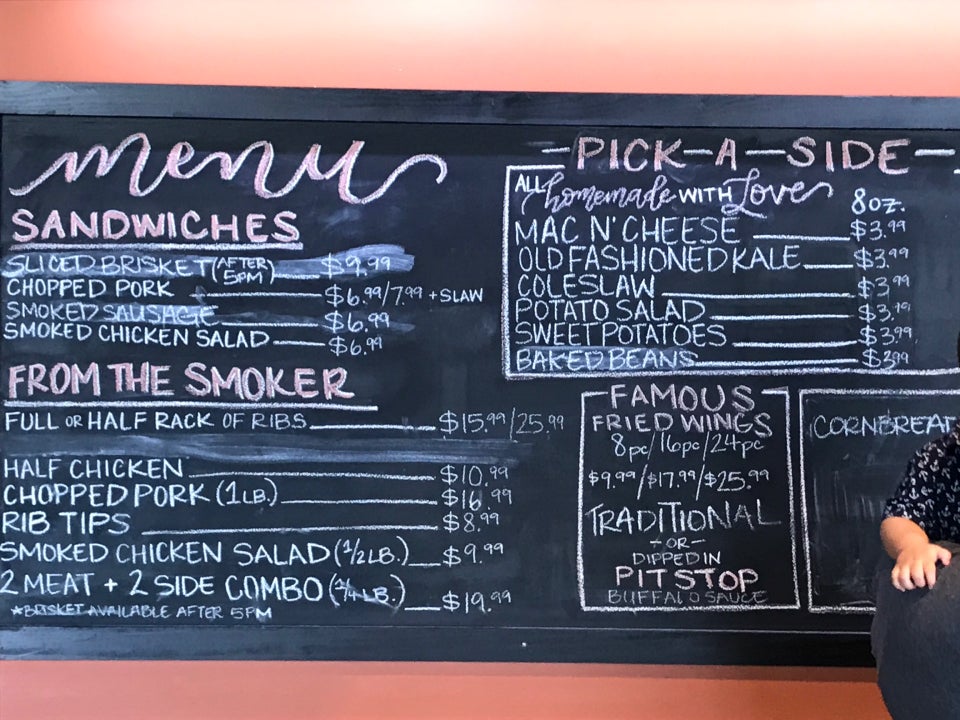 menu
SANDWICHES
SLICED BRISKET (AFTER 5PM) $9.99
CHOPPED PORK $6.99/7.99 + SLAW
SMOKED SAUSAGE $6.99
SMOKED CHICKEN SALAD $6.99
FROM THE SMOKER
FULL OR HALF RACK OF RIBS $15.99/25.99
HALF CHICKEN $10.99
CHOPPED PORK (1LB.) $16.99
RIB TIPS $8.99
SMOKED CHICKEN SALAD (1/2 LB.) $9.99
2 MEAT + 2 SIDE COMBO (1/4 LB.) $19.99
*BRISKET AVAILABLE AFTER 5PM
PICK-A-SIDE
ALL homemade WITH Love 8oz.
MAC N' CHEESE $3.99
OLD FASHIONED KALE $3.99
COLESLAW $3.99
POTATO SALAD $3.99
SWEET POTATOES $3.99
BAKED BEANS $3.99
FAMOUS
FRIED WINGS
8pc/16pc/24pc
$9.99/$17.99/$25.99
TRADITIONAL
-OR-
DIPPED IN
PIT STOP
BUFFALO SAUCE
CORNBREAT